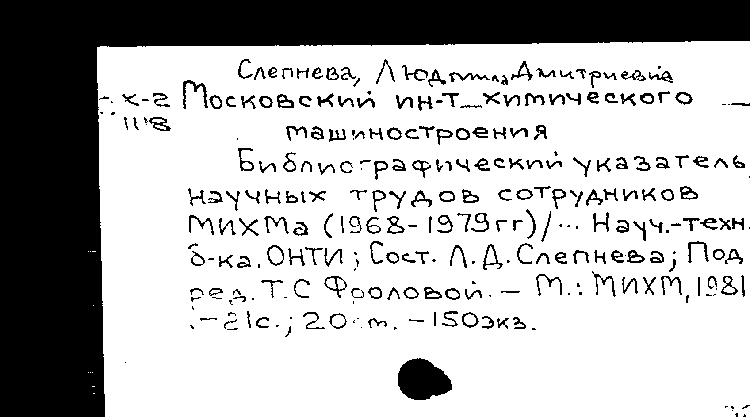 Слепнева, Людмила Дмитриевна
Х-2 Московский ин-т химического
1118
машиностроения
Библиографический указатель
научных трудов сотрудников
МИХМа (1968-1979гг)/... Науч.-техн.
б-ка. ОНТИ; Сост. Л.Д. Слепнева; Под
ред. Т.С Фроловой. - М.: МИХМ, 1981
.-21с.; 20 см. -150экз.